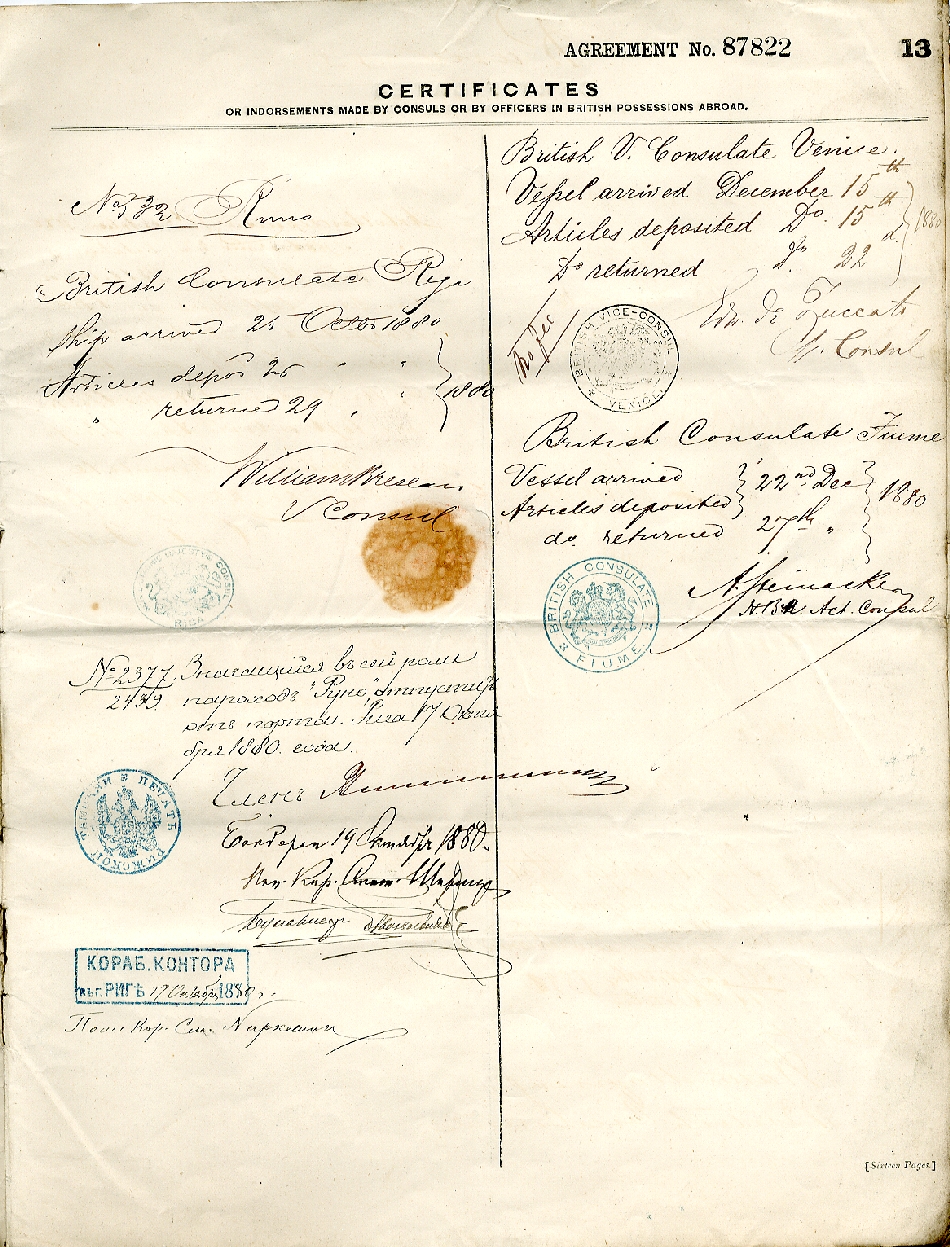 AGREEMENT No. 87822
13
CERTIFICATES
OR INDORSEMENTS MADE BY CONSULS OR BY OFFICERS IN BRITISH POSSESSIONS ABROAD.
British Consulate Riga
Ship arrived 25 Octbr 1880
Articles depos 25 " "
" returned 29 " "
1880
William
V Consul
RIGA
№ 2377
2439
Значащійся въ сей роли
пароходъ "Руно"
отъ порта. Рига 17 Октя
бря 1880. года.
Членъ
19 Октября 1880.
КОРАБ.КОНТОРА
въ г. РИГѢ 17 Октября 1880 г.
British V. Consulate Venice.
Vessel arrived December 15th
Articles deposited Do. 15
Do returned Do 22
1880
No Fee
BRITISH VICE-CONSUL
VENICE
V. Consul
British Consulate Fiume
Vessel arrived
Articles deposited
22nd Dec
do. returned 27th "
1880
BRITISH CONSULATE
FIUME
HBM Act. Consul
[Sixteen Pages]